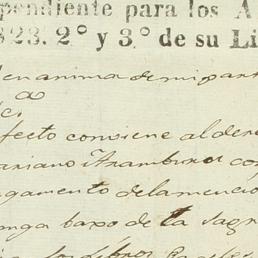 pendiente para los A
823. 2.º y 3.º de su Li
en anima de mi part
a
fecto conviene al dere
ariano Aramburo co
gamento de la mencio
nga baxo de la sagr